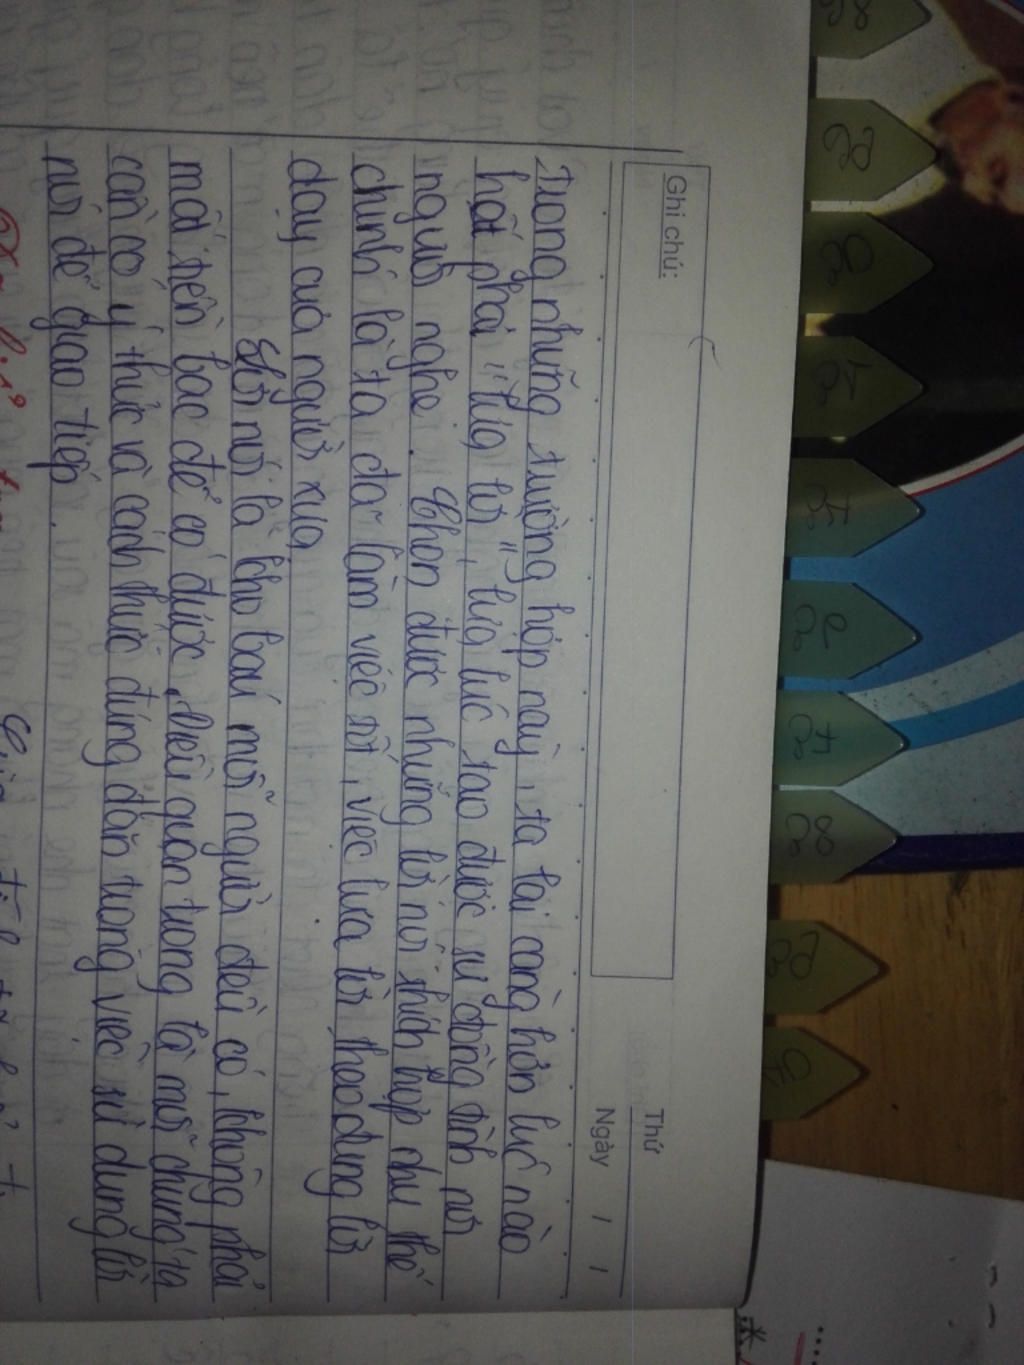 Ghi chú:
Thứ
Ngày / /
Trong những trường hợp này, ta lại càng hơn lúc nào
hết phải "lựa lời", lựa lúc tạo được sự đồng tình nơi
người nghe. Chọn được những lời nói thích hợp như thế
chính là ta đã làm việc tốt, việc lựa lời theo đúng lời
dạy của người xưa
Lời nói là kho báu mỗi người đều có, không phải
mất tiền bạc để có được. Điều quan trọng là mỗi chúng ta
cần có ý thức và cách thức đúng đắn trong việc sử dụng lời
nói để giao tiếp.